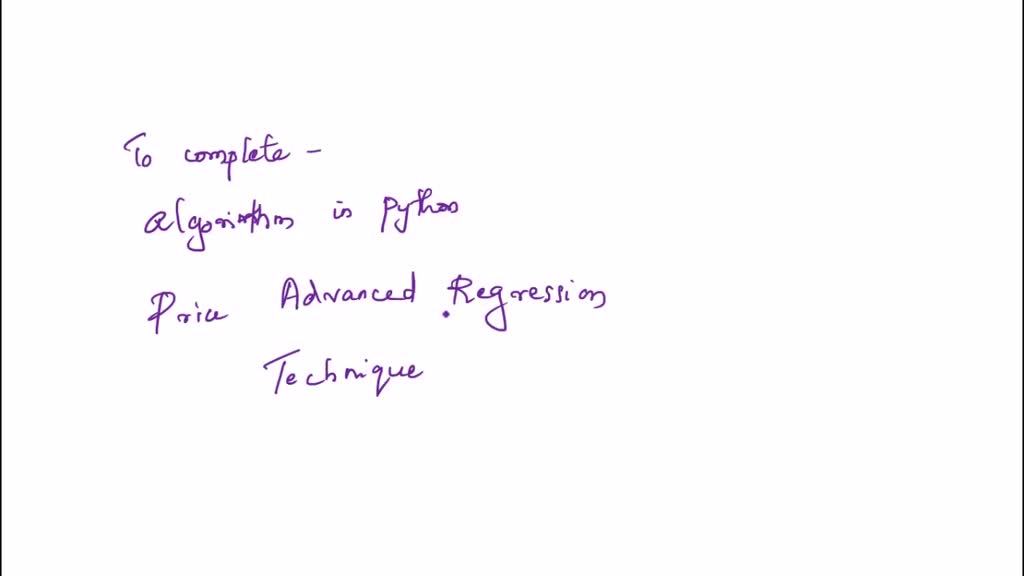 To complete -
algorithm in Python
Price Advanced Regression
Technique